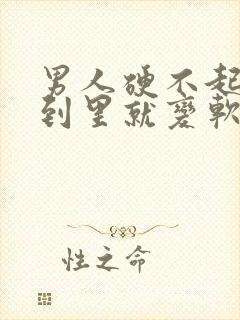 男人硬不起
到里就变軟
性之命